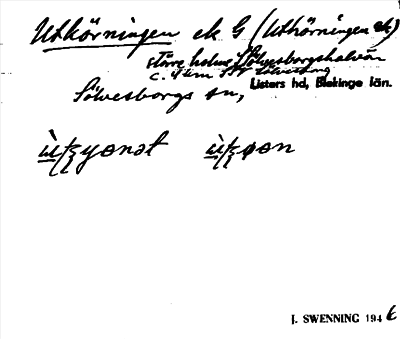 Utkörningen ek G (Utkörningen
större holme, Sölvesborgshalvön
c. 4 km SSV Sölvesborg
Sölvesborgs sn, Listers hd, Blekinge län.
J. SWENNING 1946